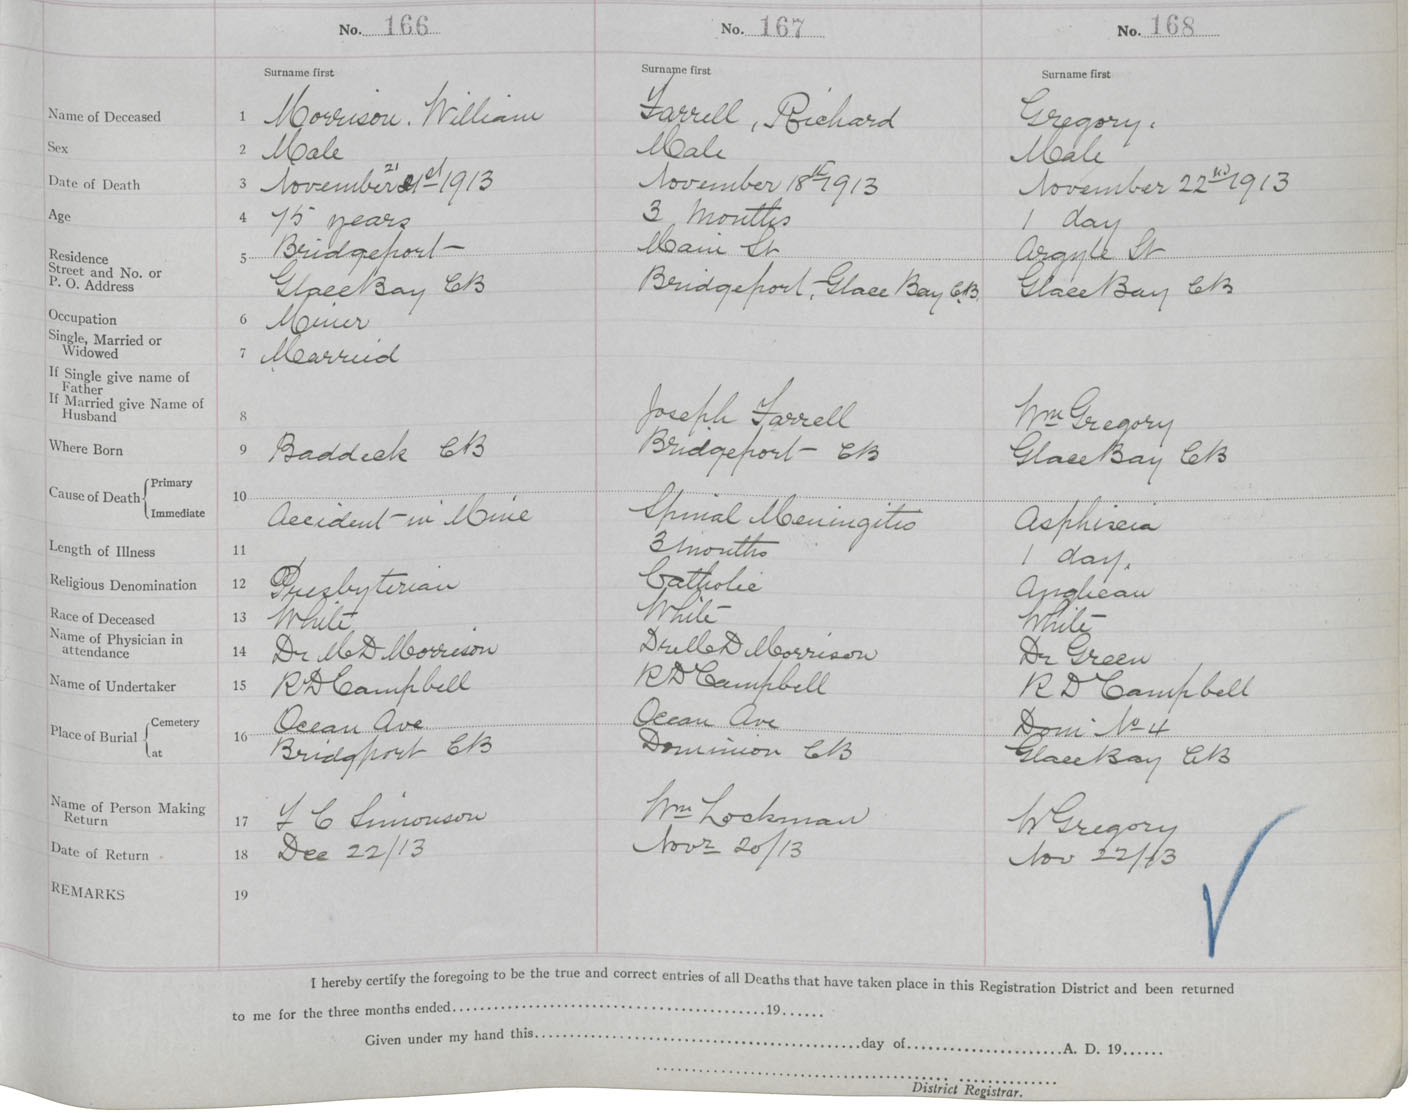 No. 166 No. 167 No. 168
Surname first Surname first Surname first
Name of Deceased 1 Morrison. William Farrell, Richard Gregory.
Sex 2 Male Male Male
Date of Death 3 November 21st 1913 November 18th 1913 November 22nd 1913
Age 4 75 years 3 months 1 day
Residence 5 Bridgeport Main St Argyle St
Street and No. or
P. O. Address Glace Bay CB Bridgeport, Glace Bay C.B. Glace Bay CB
Occupation 6 Miner
Single, Married or
Widowed 7 Married
If Single give name of
Father
If Married give Name of
Husband 8 Joseph Farrell Wm Gregory
Where Born 9 Baddeck CB Bridgeport CB Glace Bay CB
Cause of Death Primary 10
Immediate Accident in Mine Spinal Meningitis Asphixia
Length of Illness 11 3 months 1 day.
Religious Denomination 12 Presbyterian Catholic Anglican
Race of Deceased 13 White White White
Name of Physician in
attendance 14 Dr M D Morrison Dr M D Morrison Dr Green
Name of Undertaker 15 R D Campbell R D Campbell R D Campbell
Place of Burial Cemetery 16 Ocean Ave Ocean Ave Dom No 4
at Bridgport CB Dominion CB Glace Bay CB
Name of Person Making
Return 17 F C Simonson Wm Lockman W Gregory
Date of Return 18 Dec 22/13 Novr 20/13 Nov 22/13
REMARKS 19
I hereby certify the foregoing to be the true and correct entries of all Deaths that have taken place in this Registration District and been returned
to me for the three months ended 19
Given under my hand this day of A. D. 19
District Registrar.